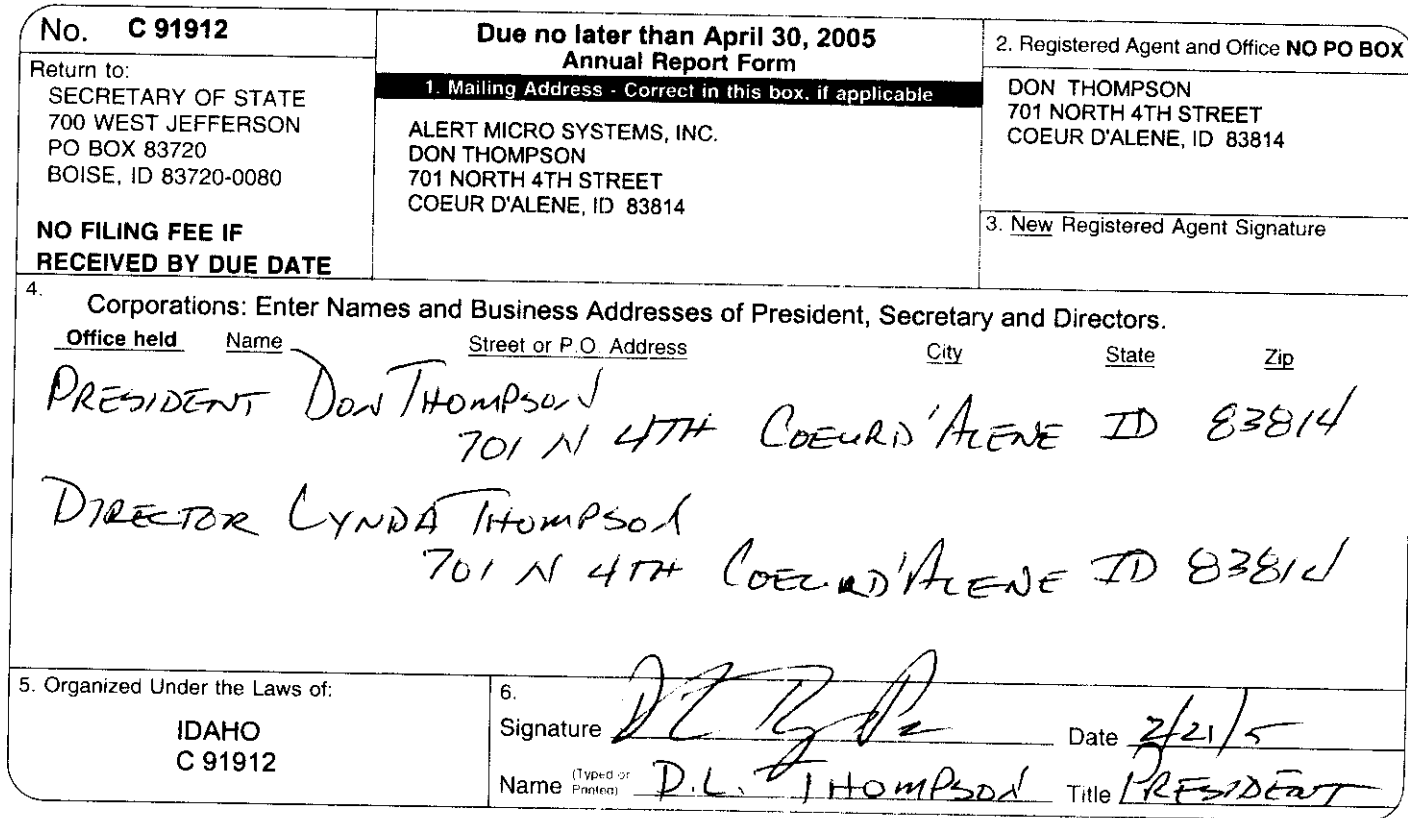 No. C 91912
Return to:
SECRETARY OF STATE
700 WEST JEFFERSON
PO BOX 83720
BOISE, ID 83720-0080
NO FILING FEE IF
RECEIVED BY DUE DATE
Due no later than April 30, 2005
Annual Report Form
1. Mailing Address - Correct in this box, if applicable
ALERT MICRO SYSTEMS, INC.
DON THOMPSON
701 NORTH 4TH STREET
COEUR D'ALENE, ID 83814
2. Registered Agent and Office NO PO BOX
DON THOMPSON
701 NORTH 4TH STREET
COEUR D'ALENE, ID 83814
3. New Registered Agent Signature
4.
Corporations: Enter Names and Business Addresses of President, Secretary and Directors.
Office held Name Street or P.O. Address City State Zip
PRESIDENT DON THOMPSON
701 N 4TH COEUR D'ALENE ID 83814
DIRECTOR LYNDA THOMPSON
701 N 4TH COEUR D'ALENE ID 83814
5. Organized Under the Laws of:
IDAHO
C 91912
6.
Signature Date 2/21/5
Name (Typed or Printed) D.L. THOMPSON Title PRESIDENT